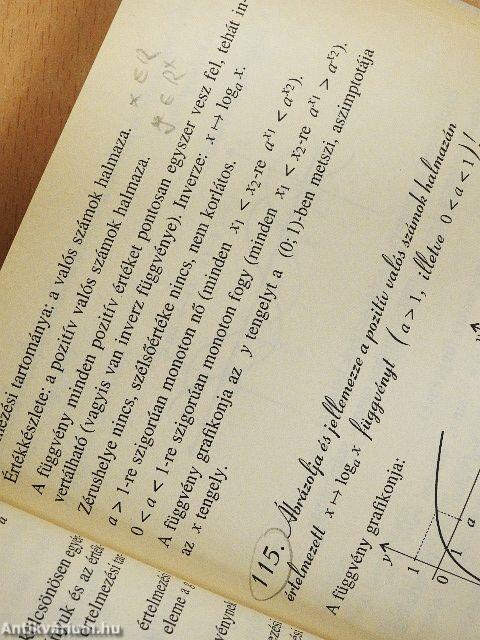 tartománya: a valós számok halmaza. x ∈ R
Értékkészlete: a pozitív valós számok halmaza. y ∈ R⁺
A függvény minden pozitív értéket pontosan egyszer vesz fel, tehát in-
vertálható (vagyis van inverz függvénye). Inverze: x ↦ logₐ x.
Zérushelye nincs, szélsőértéke nincs, nem korlátos.
a > 1-re szigorúan monoton nő (minden x₁ < x₂-re aˣ¹ < aˣ²).
0 < a < 1-re szigorúan monoton fogy (minden x₁ < x₂-re aˣ¹ > aˣ²).
A függvény grafikonja az y tengelyt a (0; 1)-ben metszi, aszimptotája
az x tengely.
115. Ábrázolja és jellemezze a pozitív valós számok halmazán
értelmezett x ↦ logₐ x függvényt (a > 1, illetve 0 < a < 1)!
A függvény grafikonja:
y
1
0
1
a
a
értelmezési
eleme a
Antikvarium.hu